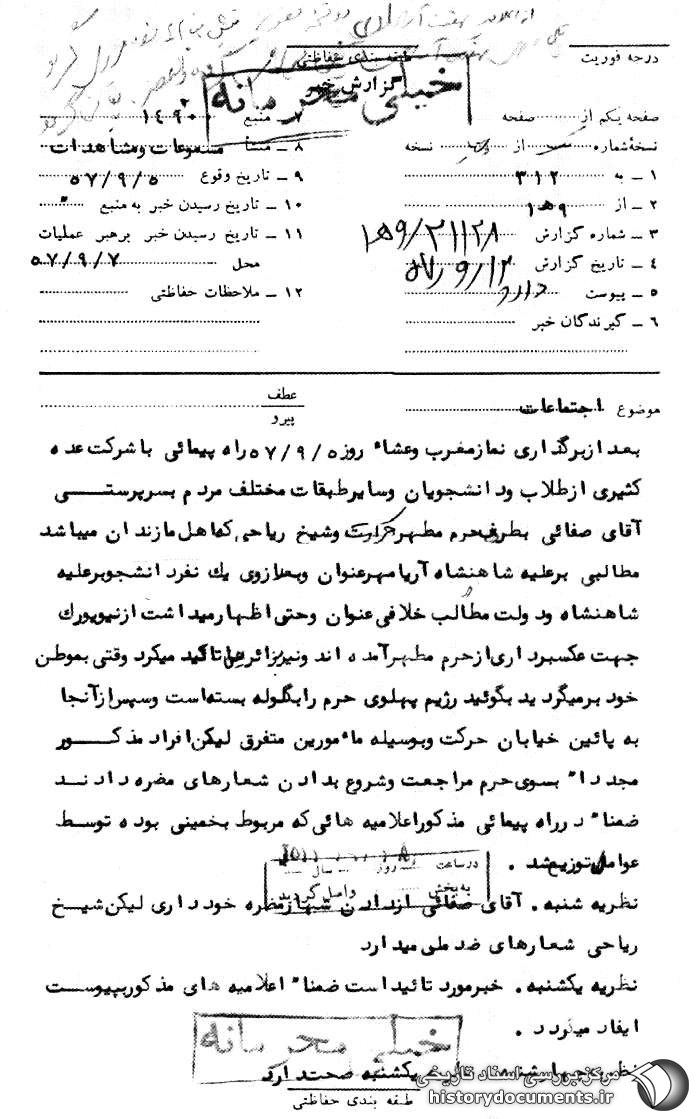 درجه فوریت
طبقه بندی حفاظتی
گزارش خبر
خیلی محرمانه
صفحه یکم از صفحه
نسخهٔ شماره از نسخه
۱ ـ به ۳۱۲
۲ ـ از ۱۵۹
۳ ـ شماره گزارش ۱۵۹/۲۱۱۲۸
۴ ـ تاریخ گزارش ۵۷/۹/۱۲
۵ ـ پیوست دارد
۶ ـ گیرندگان خبر
۷ ـ منبع ۱۴۹۰۰
۸ ـ منشأ مسموعات و مشاهدات
۹ ـ تاریخ وقوع ۵۷/۹/۵
۱۰ ـ تاریخ رسیدن خبر به منبع
۱۱ ـ تاریخ رسیدن خبر برهبر عملیات
محل ۵۷/۹/۷
۱۲ ـ ملاحظات حفاظتی
موضوع اجتماعات
عطف
پیرو
بعد از برگذاری نماز مغرب وعشاء روز ۵۷/۹/۵ راه پیمائی با شرکت عده
کثیری از طلاب ودانشجویان وسایر طبقات مختلف مردم بسرپرستی
آقای صفائی بطرف حرم مطهر حرکت وشیخ ریاحی که اهل مازندران میباشد
مطالبی برعلیه شاهنشاه آریامهر عنوان وبعد از وی یك نفر دانشجو برعلیه
شاهنشاه ودولت مطالب خلافی عنوان وحتی اظهار میداشت از نیویورك
جهت عکسبرداری از حرم مطهر آمده اند ونیز بزائرین تاکید میکرد وقتی بموطن
خود برمیگردید بگوئید رژیم پهلوی حرم را بگلوله بسته است وسپس از آنجا
به پائین خیابان حرکت وبوسیله مأمورین متفرق لیکن افراد مذکور
مجدداً بسوی حرم مراجعت وشروع بدادن شعارهای مضره دادند
ضمناً در راه پیمائی مذکور اعلامیه هائی که مربوط بخمینی بوده توسط
عوامل توزیع شد .
در ساعت روز سال
به بخش واصل گردید
نظریه شنبه . آقای صفائی از دادن شعار مضره خودداری لیکن شیخ
ریاحی شعارهای ضد ملی میدارد
نظریه یکشنبه . خبر مورد تائید است ضمناً اعلامیه های مذکور بپیوست
ایفاد میگردد .
خیلی محرمانه
یکشنبه صحت دارد
طبقه بندی حفاظتی
مرکز بررسی اسناد تاریخی
historydocuments.ir